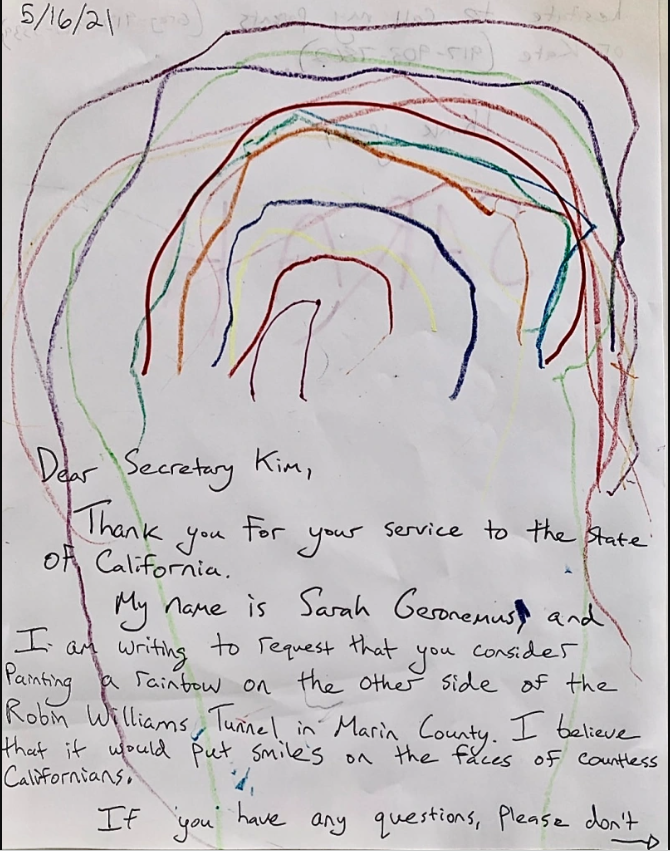 5/16/21
Dear Secretary Kim,
Thank you for your service to the state
of California.
My name is Sarah Geronemus, and
I am writing to request that you consider
Painting a rainbow on the other side of the
Robin Williams Tunnel in Marin County. I believe
that it would put smiles on the faces of countless
Californians.
If you have any questions, please don't